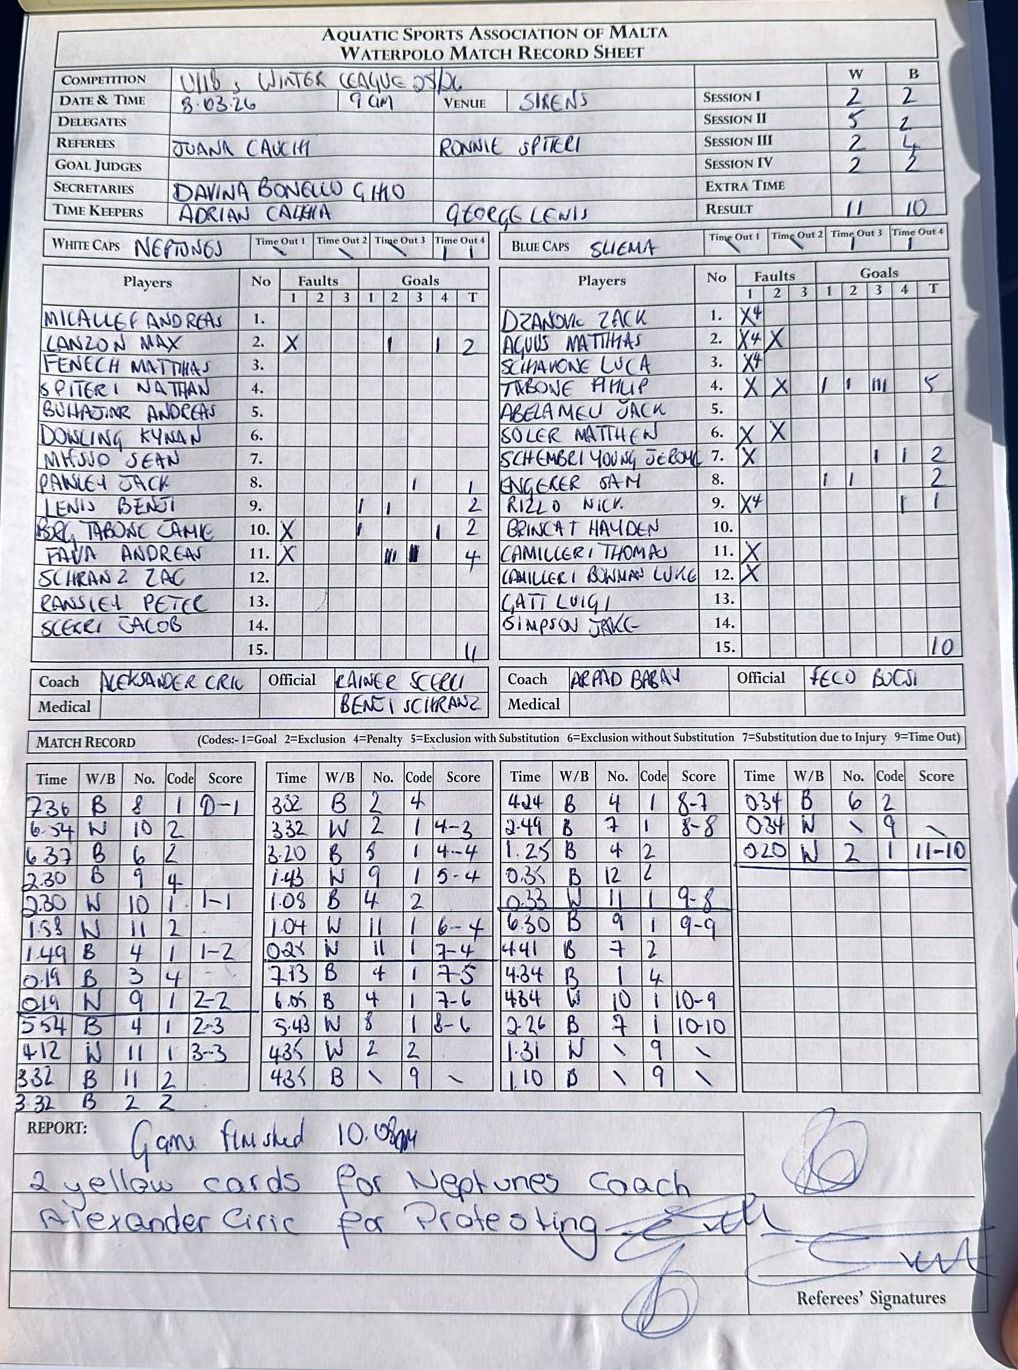 AQUATIC SPORTS ASSOCIATION OF MALTA
WATERPOLO MATCH RECORD SHEET
COMPETITION U18s WINTER LEAGUE 25/26 W B
DATE & TIME 8.03.26 9am VENUE SIRENS SESSION I 2 2
DELEGATES SESSION II 5 2
REFEREES JUANA CAUCHI RONNIE SPITERI SESSION III 2 4
GOAL JUDGES SESSION IV 2 2
SECRETARIES DAVINA BONELLO GHIO EXTRA TIME
TIME KEEPERS ADRIAN CALEHA GEORGE LEWIS RESULT 11 10
WHITE CAPS NEPTUNES Time Out 1 \ Time Out 2 \ Time Out 3 \ Time Out 4 | |
BLUE CAPS SLIEMA Time Out 1 \ Time Out 2 \ Time Out 3 | Time Out 4 |
Players No Faults Goals
1 2 3 1 2 3 4 T
MICALLEF ANDREAS 1.
LANZON MAX 2. X | | 2
FENECH MATTHIAS 3.
SPITERI NATHAN 4.
BUHAJIAR ANDREAS 5.
DOWLING KYNAN 6.
MIFSUD SEAN 7.
PAWLEY JACK 8. | 1
LEWIS BENJI 9. | | 2
BORG TABONE JAMIE 10. X | | 2
FAVA ANDREAS 11. X 4
SCHRANZ ZAC 12.
RANSLEY PETER 13.
SCERRI JACOB 14.
15. 11
Players No Faults Goals
1 2 3 1 2 3 4 T
DZANOVIC ZACK 1. X4
AGIUS MATTHIAS 2. X4 X
SCHIAVONE LUCA 3. X4
TABONE PHILIP 4. X X | | ||| 5
ABELA MELI JACK 5.
SOLER MATTHEW 6. X X
SCHEMBRI YOUNG JEROME 7. X | | 2
ENGERER SAM 8. | | 2
RIZZO NICK 9. X4 | 1
BRINCAT HAYDEN 10.
CAMILLERI THOMAS 11. X
CAMILLERI BOWMAN LUKE 12. X
GATT LUIGI 13.
SIMPSON JAKE 14.
15. 10
Coach ALEKSANDER CIRIC Official RAINER SCERRI
Medical BENJI SCHRANZ
Coach ARPAD BABAY Official FECO BUJSI
Medical
MATCH RECORD (Codes:- 1=Goal 2=Exclusion 4=Penalty 5=Exclusion with Substitution 6=Exclusion without Substitution 7=Substitution due to Injury 9=Time Out)
Time W/B No. Code Score
7.36 B 8 1 0-1
6.54 W 10 2
6.37 B 6 2
2.30 B 9 4
2.30 W 10 1 1-1
1.58 W 11 2
1.49 B 4 1 1-2
0.19 B 3 4
0.19 W 9 1 2-2
5.54 B 4 1 2-3
4.12 W 11 1 3-3
3.32 B 11 2
3.32 B 2 2
Time W/B No. Code Score
3.32 B 2 4
3.32 W 2 1 4-3
3.20 B 8 1 4-4
1.43 W 9 1 5-4
1.08 B 4 2
1.04 W 11 1 6-4
0.25 W 11 1 7-4
7.13 B 4 1 7-5
6.05 B 4 1 7-6
5.43 W 8 1 8-6
4.35 W 2 2
4.35 B \ 9 \
Time W/B No. Code Score
4.24 B 4 1 8-7
2.49 B 7 1 8-8
1.25 B 4 2
0.35 B 12 2
0.33 W 11 1 9-8
6.30 B 9 1 9-9
4.41 B 7 2
4.34 B 1 4
4.34 W 10 1 10-9
2.26 B 7 1 10-10
1.31 W \ 9 \
1.10 B \ 9 \
Time W/B No. Code Score
0.34 B 6 2
0.34 W \ 9 \
0.20 W 2 1 11-10
REPORT: Game finished 10.08am
2 yellow cards for Neptunes Coach
Alexander Ciric for Protesting
Referees' Signatures